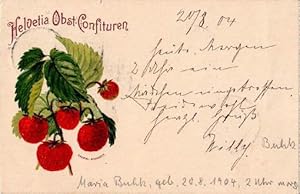 Helvetia Obst-Confituren
20/8. 04
Heute Morgen
2 Uhr ein
Mädchen eingetroffen.
herzl. Gruß
Willy.
Buhk
Maria Buhk, geb. 20.8.1904, 2 Uhr morg